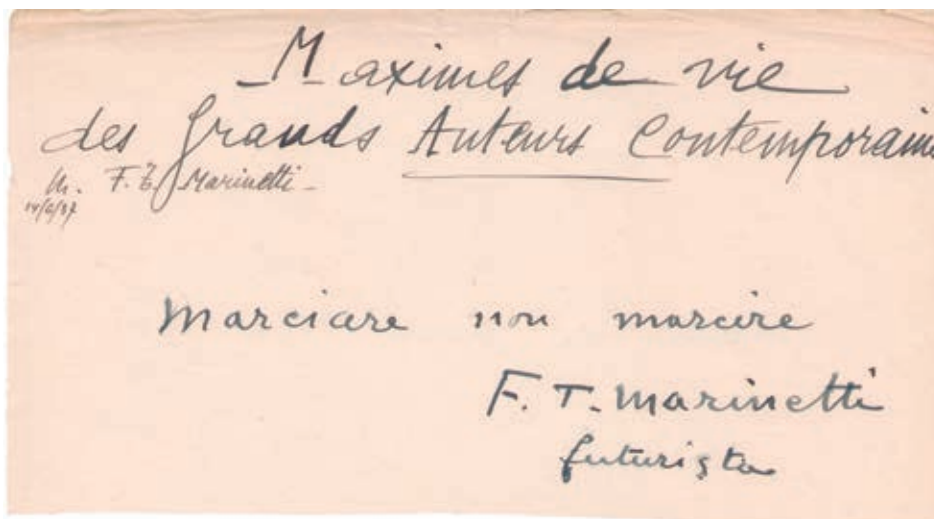 Maximes de vie
des Grands Auteurs Contemporains
M. F. T. Marinetti
Marciare non marcire
F. T. Marinetti
futurista